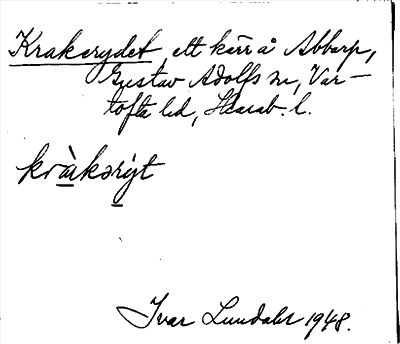 Krakerydet, ett kärr å Abbarp,
Gustav Adolfs sn, Var-
tofta hd, Skarab. l.
kràkəryt
Ivar Lundahl 1948.